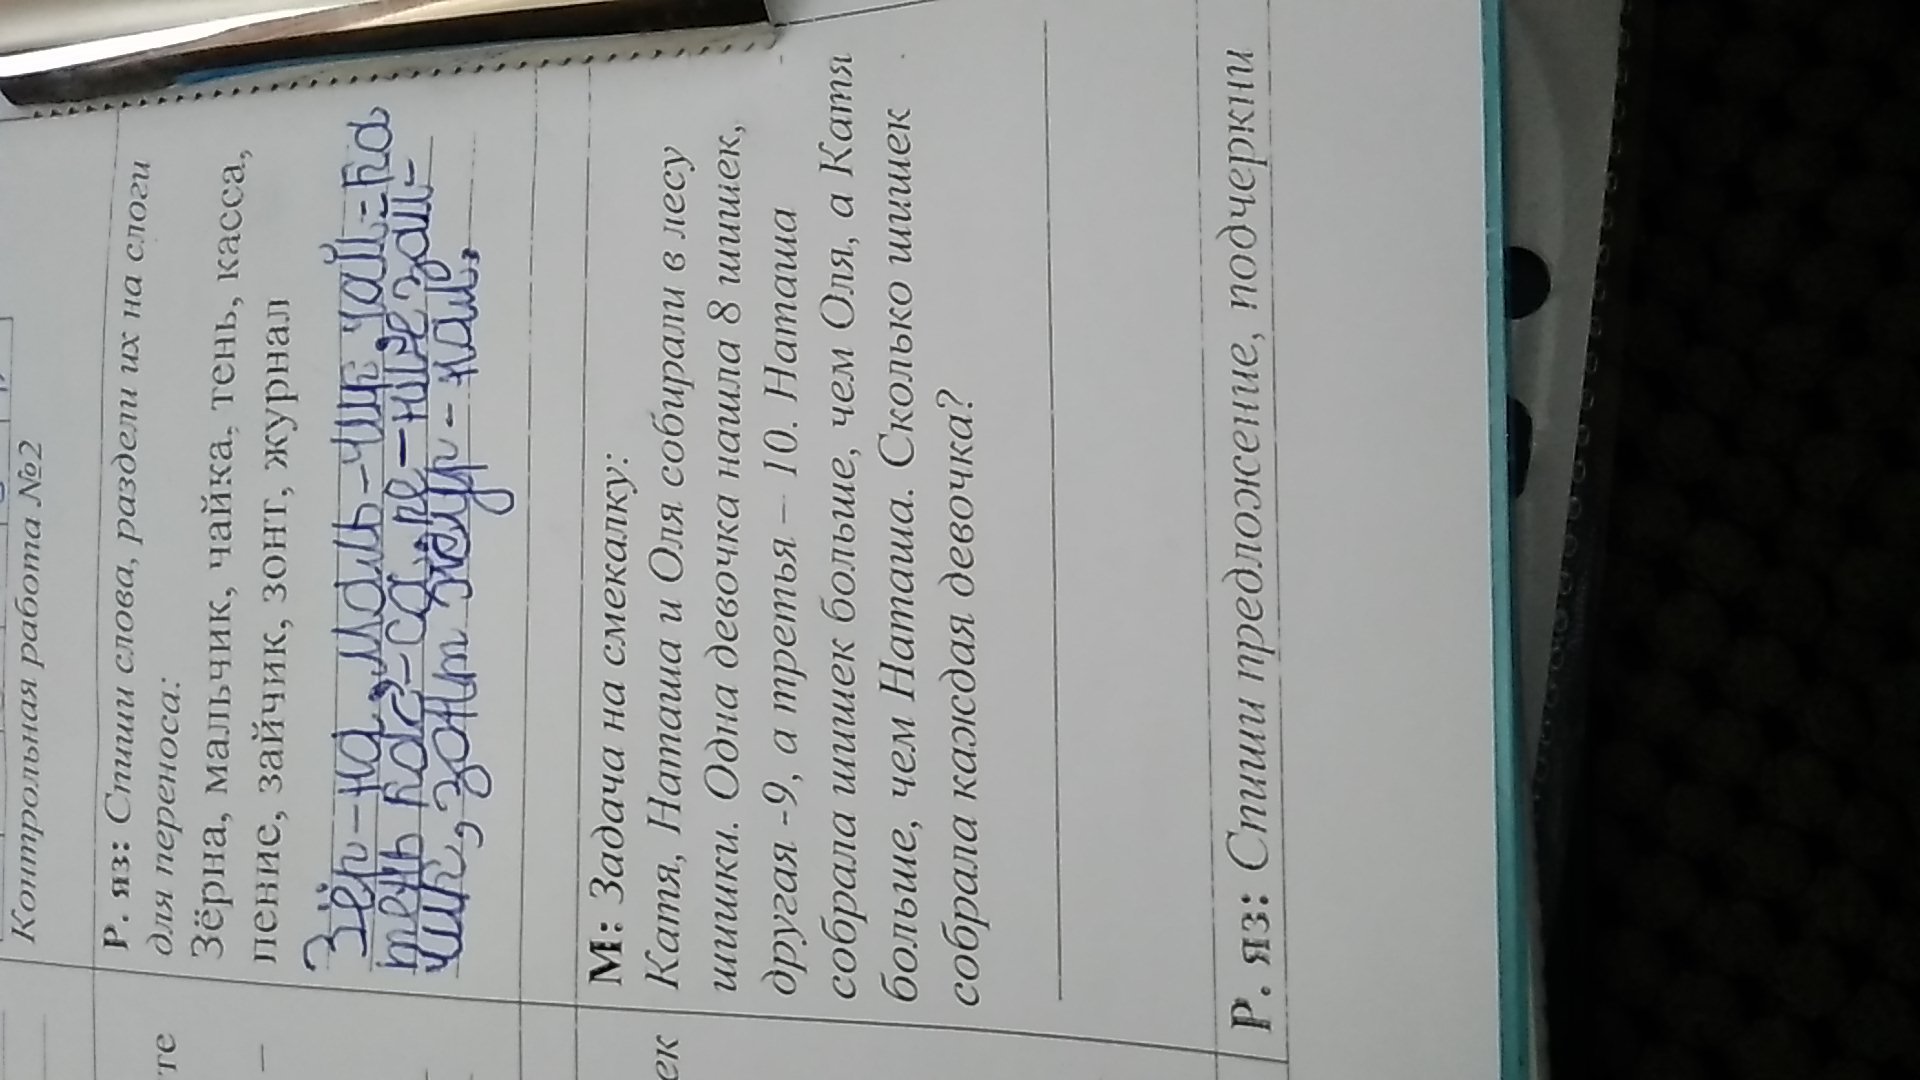 Контрольная работа №2
Р. яз: Спиши слова, раздели их на слоги
для переноса:
Зёрна, мальчик, чайка, тень, касса,
пение, зайчик, зонт, журнал
Зёр-на, маль-чик чай-ка
тень кас-са пе-ние зай-
чик, зонт жур-нал,
М: Задача на смекалку:
Катя, Наташа и Оля собирали в лесу
шишки. Одна девочка нашла 8 шишек,
другая -9, а третья – 10. Наташа
собрала шишек больше, чем Оля, а Катя
больше, чем Наташа. Сколько шишек
собрала каждая девочка?
Р. яз: Спиши предложение, подчеркни
те
–
ек